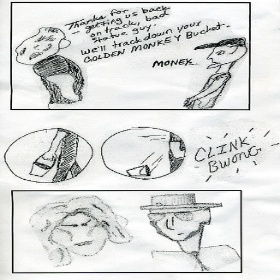 Thanks for
— getting us back
on track, bad
statue guy.
We'll track down your
GOLDEN MONKEY Bucket.
MONEK
CLINK
BWONG